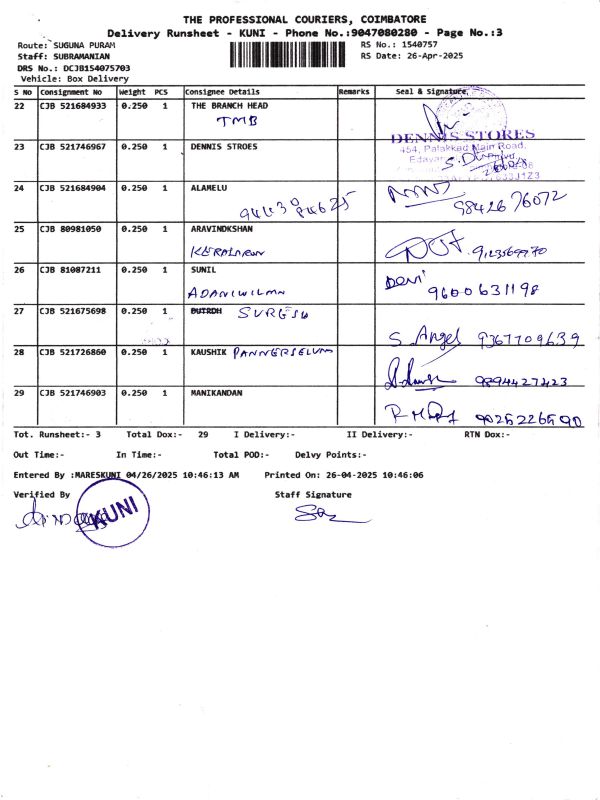 THE PROFESSIONAL COURIERS, COIMBATORE
Delivery Runsheet - KUNI - Phone No.:9047080280 - Page No.:3
Route: SUGUNA PURAM RS No.: 1540757
Staff: SUBRAMANIAN RS Date: 26-Apr-2025
DRS No.: DCJB154075703
Vehicle: Box Delivery
S NO Consignment No Weight PCS Consignee Details Remarks Seal & Signature
22 CJB 521684933 0.250 1 THE BRANCH HEAD
TMB
23 CJB 521746967 0.250 1 DENNIS STROES
DENNIS STORES
454, Palakkad Main Road,
24 CJB 521684904 0.250 1 ALAMELU
9842676072
25 CJB 80981050 0.250 1 ARAVINDKSHAN
26 CJB 81087211 0.250 1 SUNIL Devi
ADANIWILMN 9600631198
27 CJB 521675698 0.250 1 DUTRDH SURGESH
S. Angel 9367709639
28 CJB 521726860 0.250 1 KAUSHIK PANNERSELUM
9894427423
29 CJB 521746903 0.250 1 MANIKANDAN
9025226590
Tot. Runsheet:- 3 Total Dox:- 29 I Delivery:- II Delivery:- RTN Dox:-
Out Time:- In Time:- Total POD:- Delvy Points:-
Entered By :MARESKUNI 04/26/2025 10:46:13 AM Printed On: 26-04-2025 10:46:06
Verified By Staff Signature
KUNI